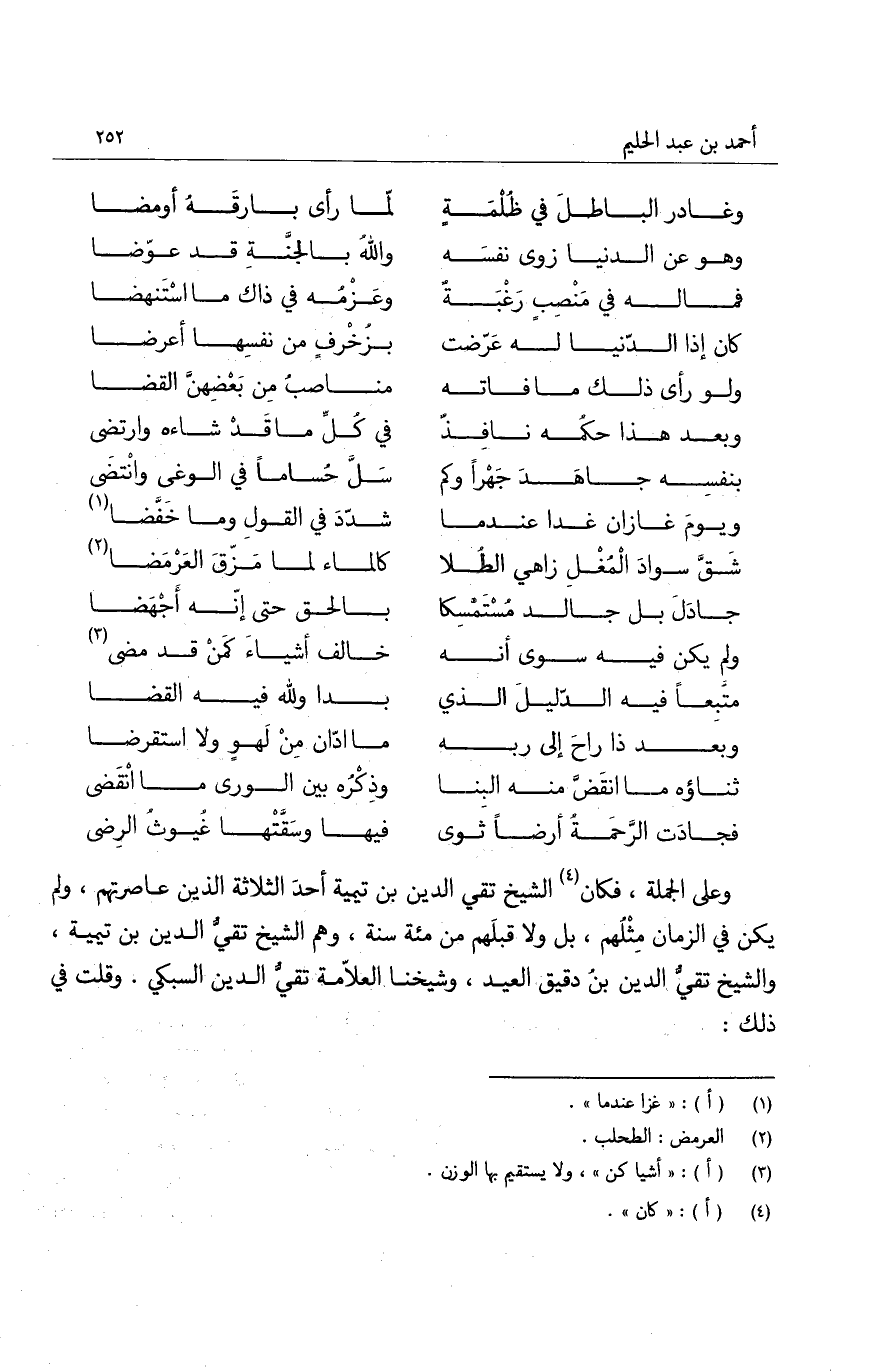 أحمد بن عبد الحليم ٢٥٢
وغادر الباطلَ في ظُلْمَةٍ لمّا رأى بارقَهُ أومضا
وهو عن الدنيا زوى نفسَه واللهُ بالجنَّةِ قد عوّضا
فماله في مَنْصِبٍ رَغْبَةٌ وعَزْمُه في ذاك مااسْتَنهضا
كان إذا الدّنيا له عَرّضت بزُخْرفٍ من نفسِها أعرضا
ولو رأى ذلك مافاته مناصبُ مِن بَعْضِهنَّ القضا
وبعد هذا حكمُه نافذٌ في كُلِّ ماقَدْ شاءه وارتضى
بنفسِه جاهَدَ جَهْراً وكم سَلَّ حُساماً في الوغى وانْتضَى
ويومَ غازان غدا عندما شدّدَ في القول وما خَفَّضا(١)
شَقَّ سوادَ الْمُغْلِ زاهي الطُلا كالماء لما مَزّقَ العَرْمَضا(٢)
جادَلَ بل جالد مُسْتَمْسِكا بالحق حتى إنّه أَجْهَضا
ولم يكن فيه سوى أنه خالف أشياءَ كَمَنْ قد مضى(٣)
متَّبعاً فيه الدّليلَ الذي بدا ولله فيه القضا
وبعد ذا راحَ إلى ربه ماادّان مِنْ لَهوٍ ولا استقرضا
ثناؤه ماانقَضَّ منه البِنا وذِكْرُه بين الورى ماانْقَضى
فجادَت الرَّحَمةُ أرضاً ثوى فيها وسَقَّتْها غُيوثُ الرِضى
وعلى الجملة ، فكان(٤) الشيخ تقي الدين بن تيمية أحدَ الثلاثة الذين عاصرتهم ، ولم
يكن في الزمان مِثْلُهم ، بل ولا قبلَهم من مئة سنة ، وهم الشيخ تقيُّ الدين بن تيمية ،
والشيخ تقيُّ الدين بنُ دقيق العيد ، وشيخنا العلاّمة تقيُّ الدين السبكي . وقلت في
ذلك :
(١) ( أ ) : « غزا عندما » .
(٢) العرمض : الطحلب .
(٣) ( أ ) : « أشيا كن » ، ولا يستقيم بها الوزن .
(٤) ( أ ) : « كان » .